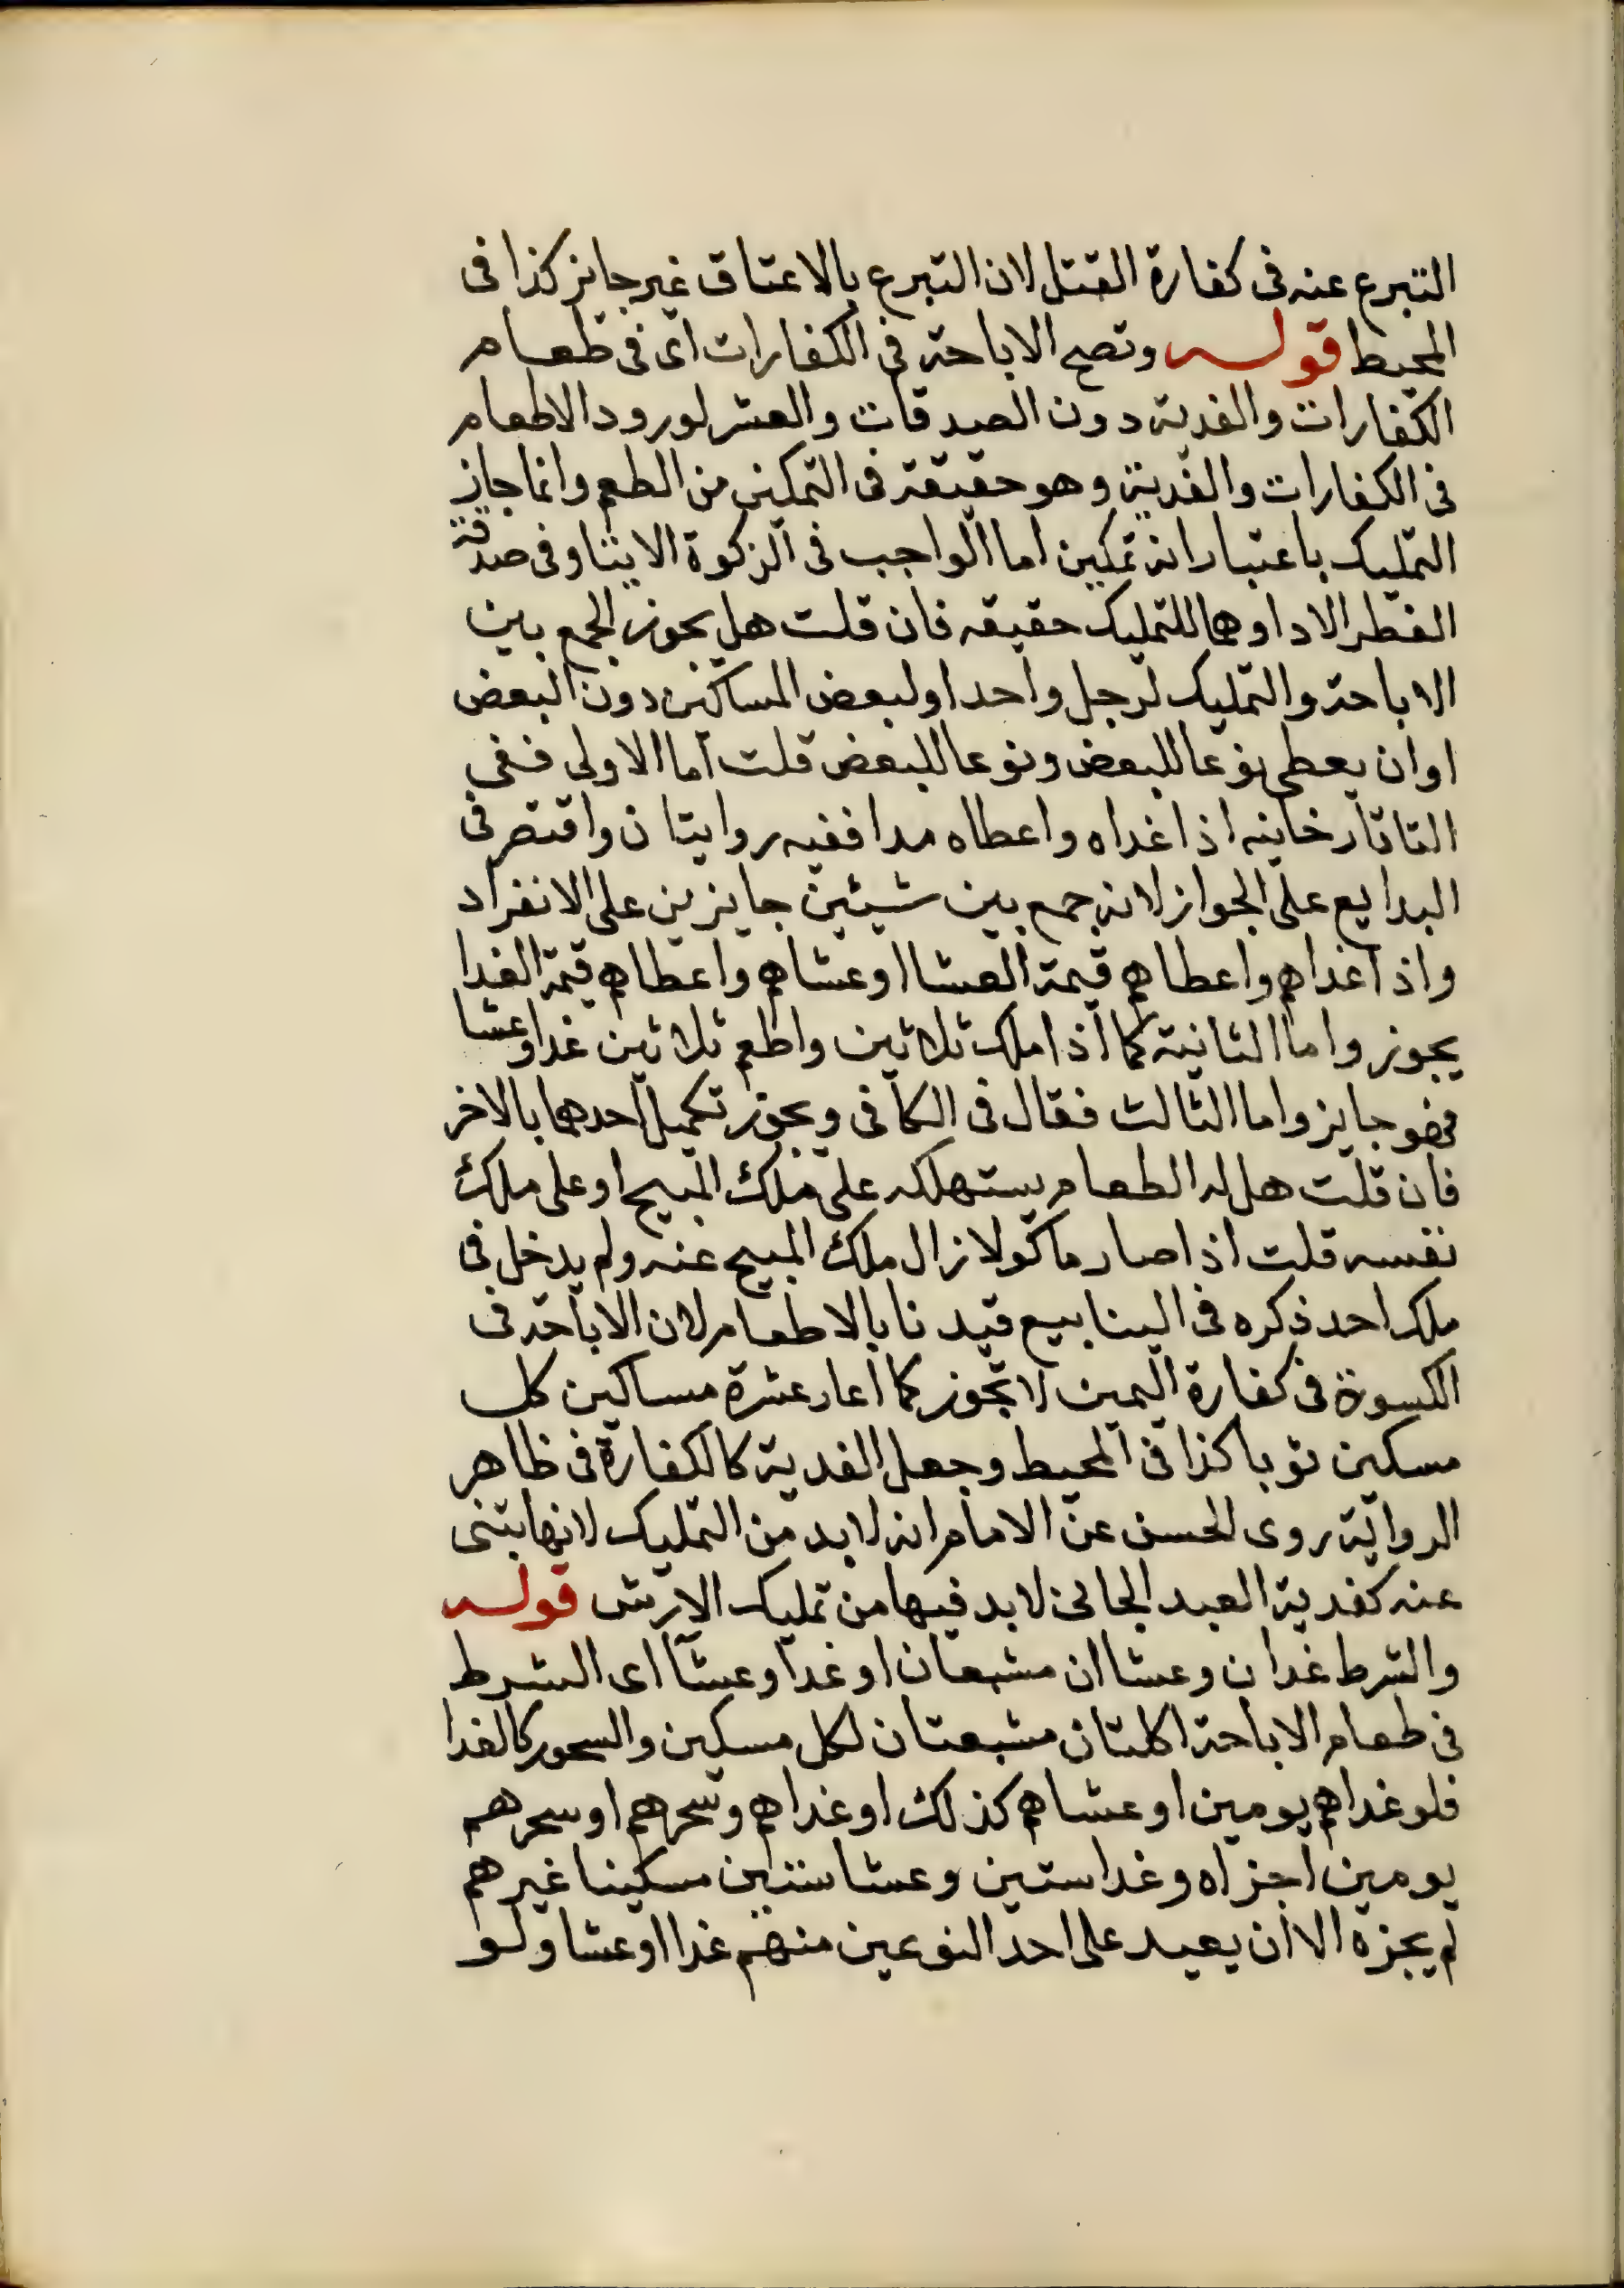 التبرع عنه فى كفارة القتل لان التبرع بالاعتاق غير جايز كذا فى
المحيط قوله وتصح الاباحة فى الكفارات اى فى طعام
الكفارات والفدية دون الصدقات والعشر لورود الاطعام
فى الكفارات والفدية وهو حقيقة فى التمكين من الطعم وانما جاز
التمليك باعتبار انه تمكين اما الواجب فى الزكوة الايتا وفى صدقة
الفطر الادا وهما للتمليك حقيقه فان قلت هل يجوز الجمع بين
الاباحة والتمليك لرجل واحد او لبعض المساكين دون البعض
او ان يعطى نوعا للبعض ونوعا للبعض قلت اما الاولى ففى
التاتارخانيه اذا غداه واعطاه مدا ففيه روايتان واقتصر فى
البدايع على الجواز لانه جمع بين شيئين جايزين على الانفراد
واذا غداهم واعطاهم قيمة العشا او عشاهم واعطاهم قيمة الغدا
يجوز واما الثانية كما اذا ملك ثلاثين واطعم ثلاثين غدا وعشا
فهو جايز واما الثالث فقال فى الكافى ويجوز تكميل احدهما بالاخر
فان قلت هل له الطعام يستهلكه على ملك المبيح او على ملك
نفسه قلت اذا صار ماكولا زال ملك المبيح عنه ولم يدخل فى
ملك احد ذكره فى الينابيع قيدنا بالاطعام لان الاباحة فى
الكسوة فى كفارة اليمين لا تجوز كما اعار عشرة مساكين كل
مسكين ثوبا كذا فى المحيط وجعل الفدية كالكفارة فى ظاهر
الرواية روى الحسن عن الامام انه لابد من التمليك لانها تبنى
عنه كفدية العبد الجانى لابد فيها من تمليك الارش قوله
والشرط غدان وعشاان مشبعان او غدا وعشا اى الشرط
فى طعام الاباحة اكلتان مشبعتان لكل مسكين والسحور كالغدا
فلو غداهم يومين او عشاهم كذلك او غداهم وسحرهم او سحرهم
يومين اجزاه وغدا ستين وعشا ستين مسكينا غيرهم
لم يجزه الا ان يعيد على احد النوعين منهم غدا او عشا ولو